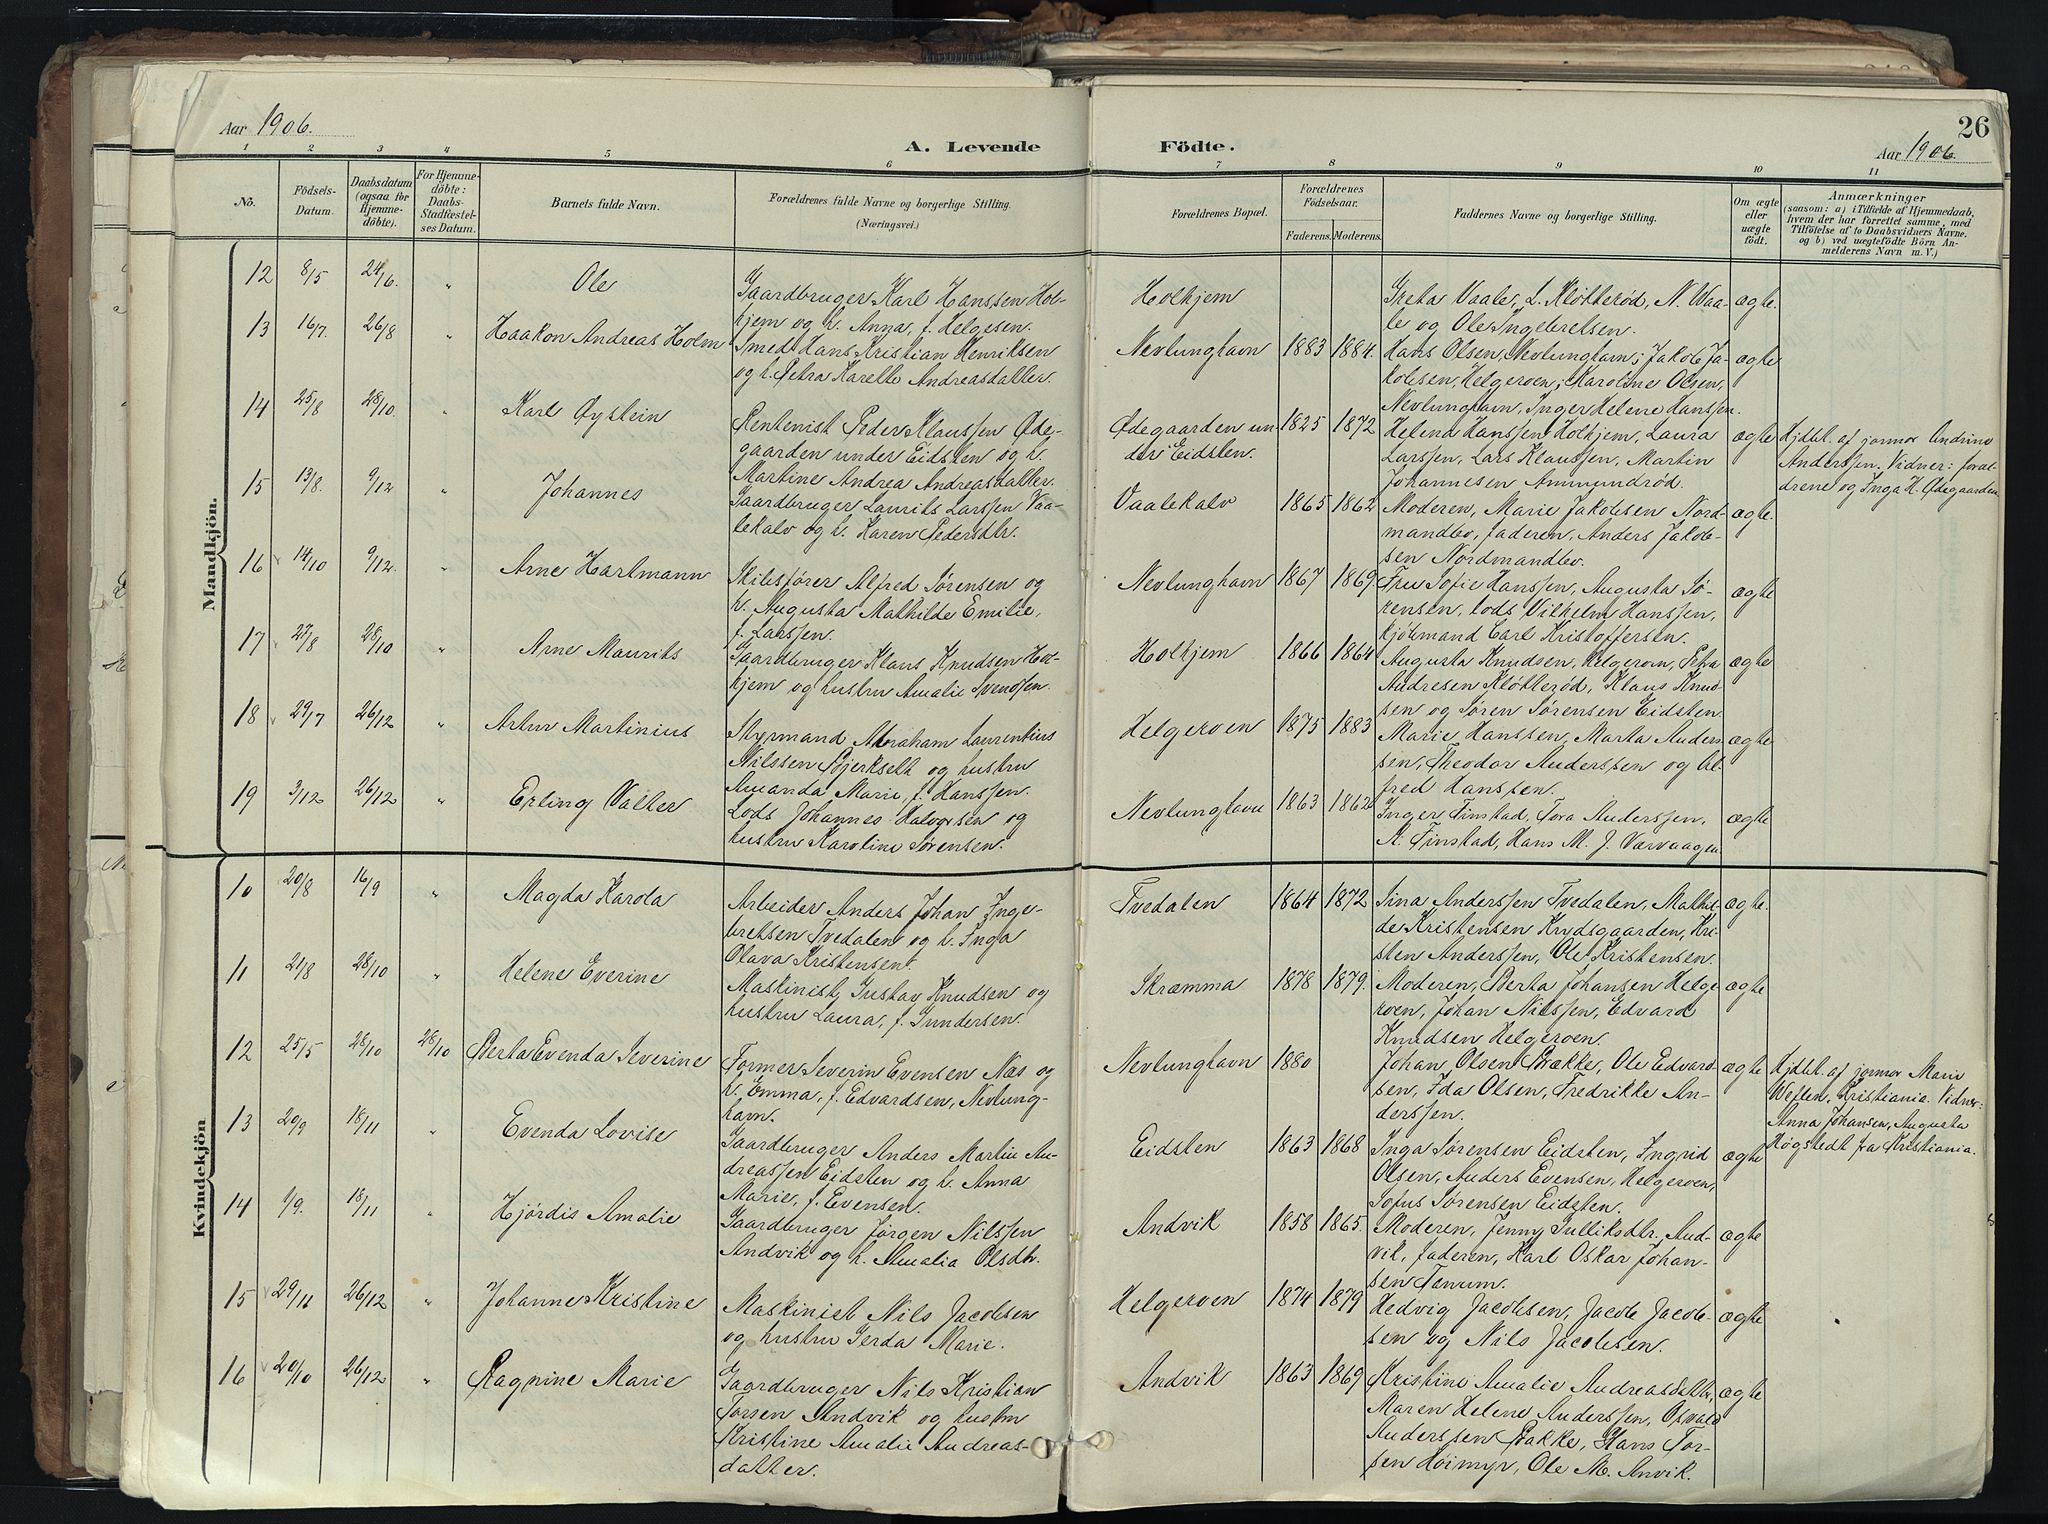 Aar 1906.
A. Levende
Födte.
26
Aar 1906.
1 2 3 4 5 6 7 8 9 10 11
No.
Födsels-
Datum.
Daabsdatum
(ogsaa for
Hjemme-
döbte).
For Hjemme-
döbte:
Daabs-
Stadfæstel-
ses Datum.
Barnets fulde Navn.
Forældrenes fulde Navne og borgerlige Stilling.
(Næringsvei.)
Forældrenes Bopæl.
Forældrenes
Födselsaar.
Faderens. Moderens.
Faddernes Navne og borgerlige Stilling.
Om ægte
eller
uægte
födt.
Anmærkninger
(saasom: a) i Tilfælde af Hjemmedaab,
hvem der har forrettet samme, med
Tilföielse af to Daabsvidners Navne.
og b) ved uægtefödte Börn An-
melderens Navn m. V.)
Mandkjön.
12 8/5 24/6. " Ole
Gaardbruger Karl Hanssen Hol-
kjem og h. Anna, f. Helgesen.
Holkjem
Greta Vaale, L. Kløtterød, N. Waa-
le og Ole Ingebretsen.
ægte.
13 16/7. 26/8 " Haakon Andreas Holm
Smed Hans Kristian Henriksen
og h. Petra Karelle Andreasdatter.
Nevlunghavn 1883 1884.
Hans Olsen, Nevlunghavn; Jakob Ja-
kobsen, Helgeroen; Karoline Olsen,
Nevlunghavn, Inger Helene Hanssen.
ægte
14 25/8 28/10. " Karl Øystein
Rentenist Peder Klaussen Øde-
gaarden under Eidsten og h.
Martine Andrea Andreasdatter.
Ødegaarden un-
der Eidsten.
1825 1872
Helena Hanssen Holkjem, Laura
Larssen, Lars Klaussen, Martin
Johannesen Ammundrød.
ægte
Hjdbt. af jormor Andrine
Anderssen. Vidner: foræl-
drene og Inga H. Ødegaarden
15 13/8. 9/12 " Johannes
Gaardbruger Laurits Larssen Vaa-
lekalv og h. Karen Pedersdtr.
Vaalekalv 1865 1862
Moderen, Marie Jakobsen Nord-
mandlev, faderen, Anders Jakob-
sen Nordmandlev.
ægte.
16 14/10 9/12. " Arne Hartmann
Skibsfører Alfred Sørensen og
h. Augusta Mathilde Emilie,
f. Larssen.
Nevlunghavn 1867 1869.
Fru Sofie Hanssen, Augusta Sø-
rensen, lods Vilhelm Hanssen,
kjøbmand Carl Kristoffersen.
ægte
17 27/8 28/10 " Arne Maurits
Gaardbruger Klaus Knudsen Hol-
kjem og hustru Amalie Svendsen.
Holkjem 1866 1864
Augusta Knudsen, Helgeroen, Petra
Andresen Kløtterød, Klaus Knud-
sen og Søren Sørensen Eidsten.
ægte
18 29/7 26/12 " Artur Martinius
Styrmand Abraham Laurentius
Nilssen Bjerkseth og hustru
Amanda Marie, f. Hanssen.
Helgeroen 1875 1883
Marie Hanssen, Marta Anders-
sen, Theodor Anderssen og Al-
fred Hanssen.
ægte
19 3/12 26/12 " Erling Valter
Lods Johannes Halvorsen og
hustru Karoline Sørensen.
Nevlunghavn 1863 1862
Inger Finstad, Tora Anderssen,
A. Finstad, Hans M. J. Værvaagen
ægte
Kvindekjön
10 20/8 16/9 " Magda Karola
Arbeider Anders Johan Inge-
bretsen Tvedalen og h. Inga
Olava Kristensen.
Tvedalen 1864 1872
Sina Anderssen Tvedalen, Mathil-
de Kristensen Krydsgaarden, Kri-
sten Anderssen, Ole Kristensen.
ægte.
11 21/8 28/10 " Helene Everine
Maskinist Gustav Knudsen og
hustru Laura, f. Gundersen.
Skræmma 1878 1879.
Moderen, Berta Johansen Helge-
roen, Johan Nilssen, Edvard
Knudsen Helgeroen.
ægte
12 25/5 28/10 28/10 Berta Evenda Severine
Former Severin Evensen Næs og
h. Emma, f. Edvardsen, Nevlung-
havn.
Nevlunghavn 1880
Johan Olsen Bakke, Ole Edvard-
sen, Ida Olsen, Fredrikke An-
derssen.
ægte
Hjdbt. af jormor Marie
Weften, Kristiania. Vidner:
Anna Johansen, Augusta
Høgstedt fra Kristiania.
13 20/9 18/11 " Evenda Lovise
Gaardbruger Anders Martin An-
dreassen Eidsten og h. Anna
Marie, f. Evensen.
Eidsten 1863 1868
Inga Sørensen Eidsten, Ingrid
Olsen, Anders Evensen, Helgeroen,
Sofus Sørensen Eidsten.
ægte
14 9/9. 18/11 " Hjørdis Amalie
Gaardbruger Jørgen Nilssen
Andvik og h. Amalia Olsdtr.
Andvik 1858 1865.
Moderen, Jenny Gulliksdtr. And-
vik, faderen, Karl Oskar Johan-
sen Tanum.
ægte
15 29/11 26/12 " Johanne Kristine
Maskinist Nils Jacobsen
og hustru Gerda Marie.
Helgeroen 1874 1879
Hedvig Jacobsen, Jacob Jacob-
sen og Nils Jacobsen.
ægte
16 20/10 26/12 " Ragnine Marie
Gaardbruger Nils Kristian
Torsen Andvik og hustru
Kristine Amalie Andreas-
datter.
Andvik 1863 1869
Kristine Amalie Andreasdatter,
Maren Helene Anderssen, Osvald
Anderssen Bakke, Hans Tor-
sen Høimyr, Ole M. Anvik.
ægte